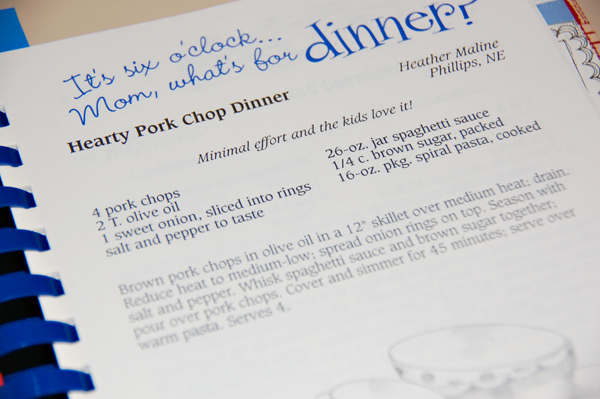 It's six o'clock...
Mom, what's for dinner?
Heather Maline
Phillips, NE
Hearty Pork Chop Dinner
Minimal effort and the kids love it!
4 pork chops
2 T. olive oil
1 sweet onion, sliced into rings
salt and pepper to taste
26-oz. jar spaghetti sauce
1/4 c. brown sugar, packed
16-oz. pkg. spiral pasta, cooked
Brown pork chops in olive oil in a 12" skillet over medium heat; drain.
Reduce heat to medium-low; spread onion rings on top. Season with
salt and pepper. Whisk spaghetti sauce and brown sugar together;
pour over pork chops. Cover and simmer for 45 minutes; serve over
warm pasta. Serves 4.